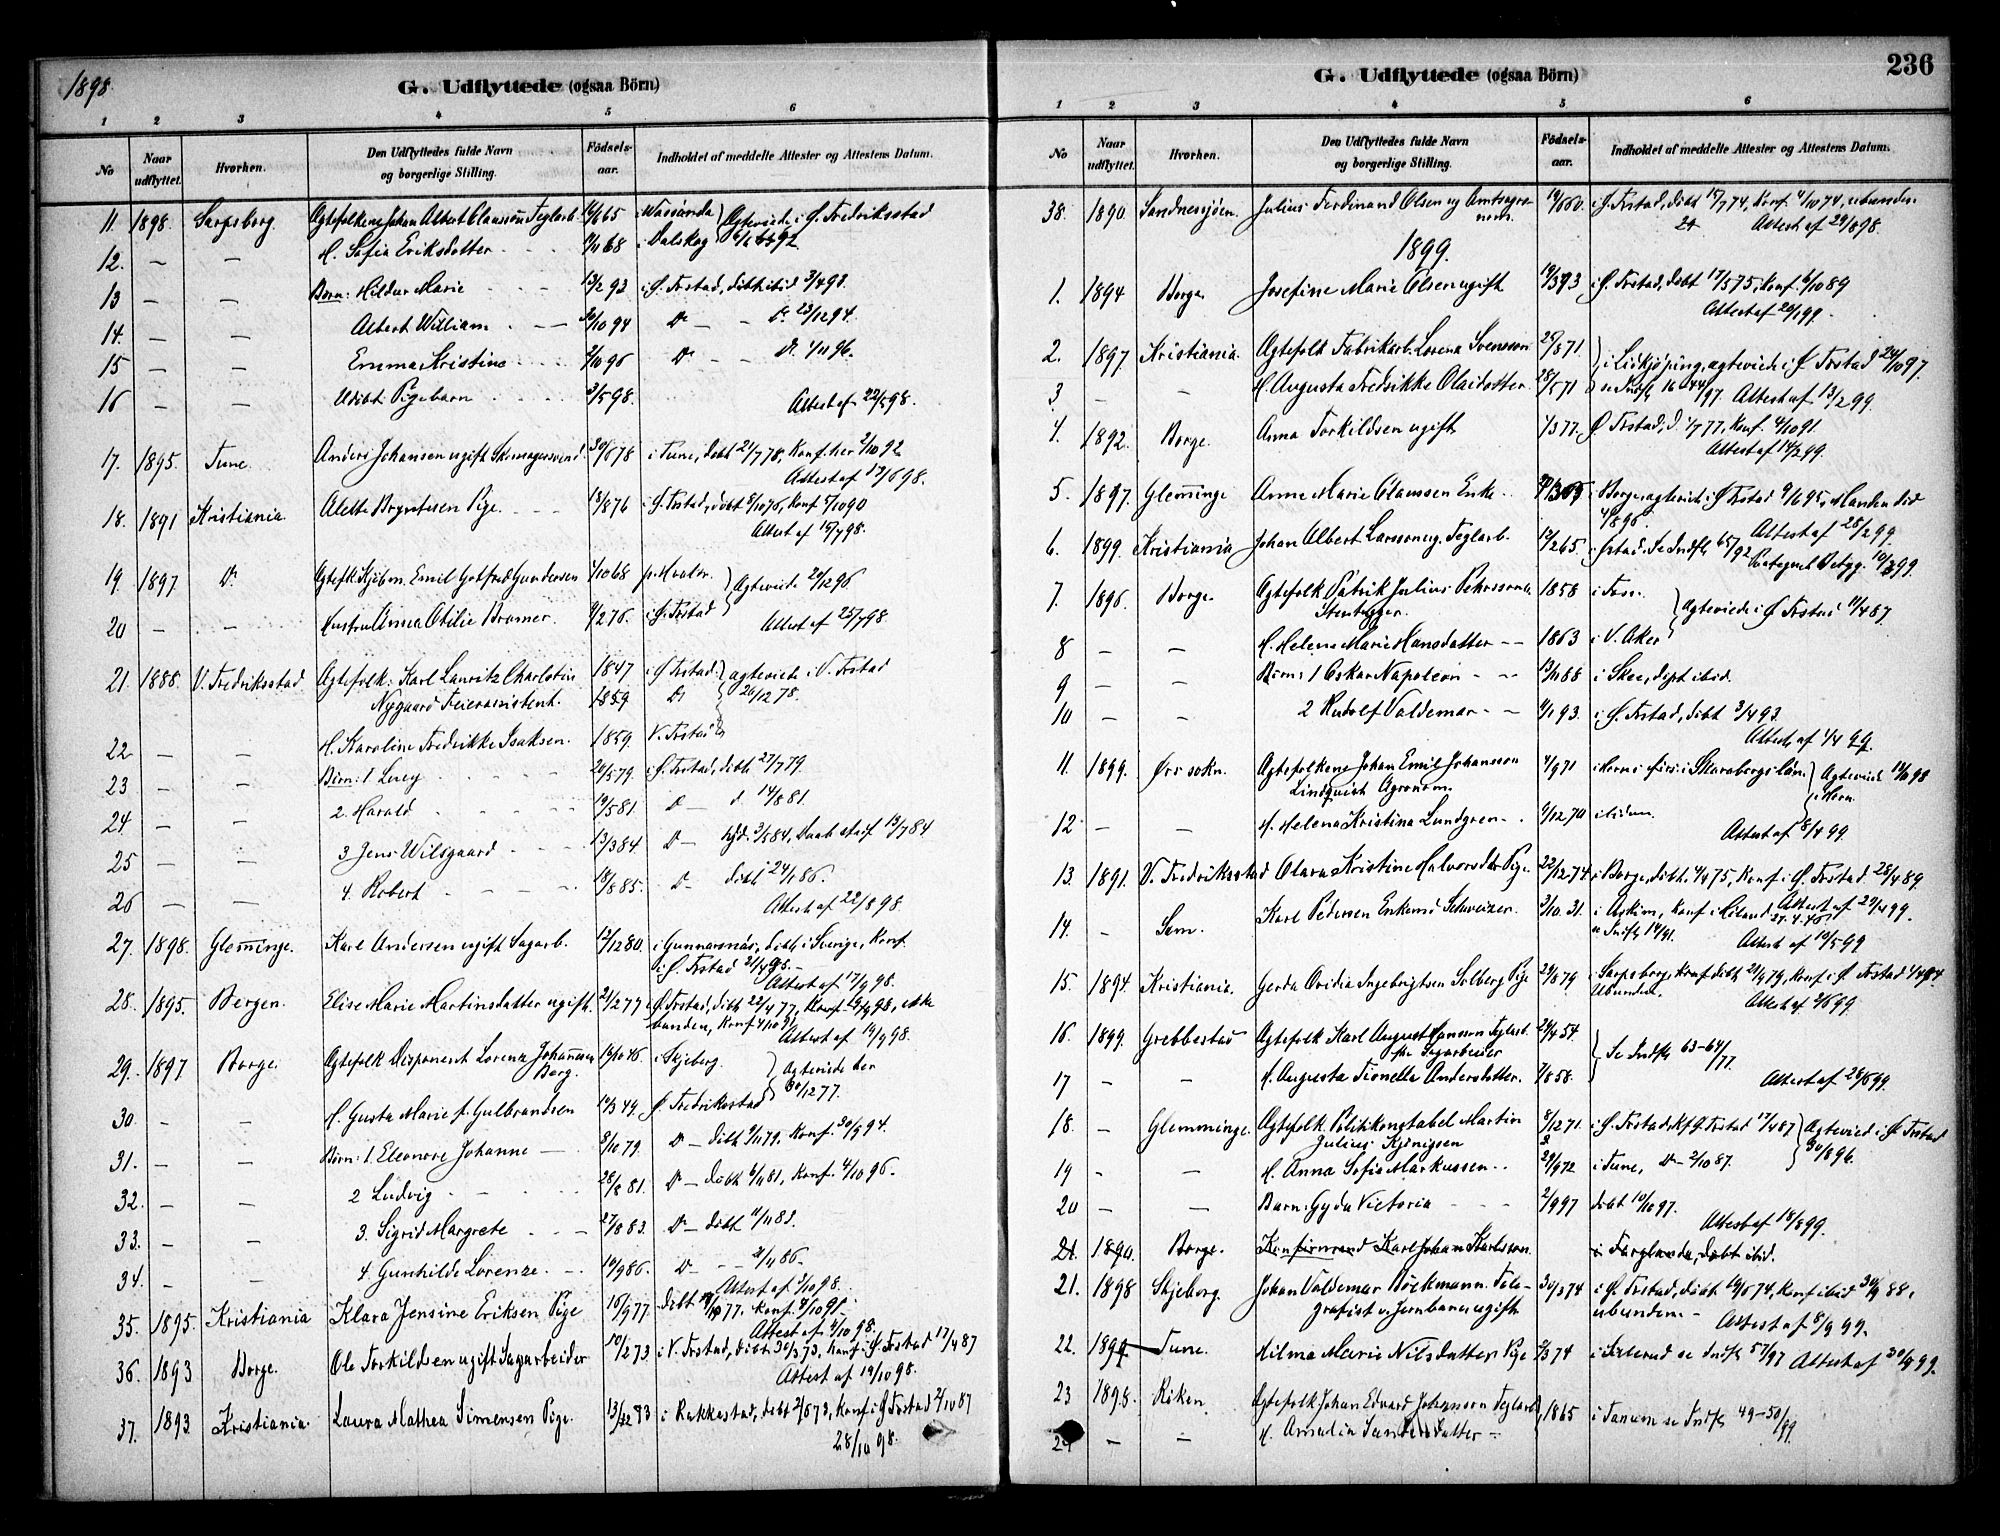 1898
G. Udflyttede (ogsaa Börn)
1 2 3 4 5 6
No Naar udflyttet. Hvorhen. Den Udflyttedes fulde Navn og borgerlige Stilling. Födsels-aar. Indholdet af meddelte Attester og Attestens Datum.
11. 1898. Sarpsborg. Ægtefolkene Johan Albert Claussøn Teglarb. 65 i Ø. Fredriksstad
12. — — H. Sofia Eriksdatter 68 i Dalskog
13 — — Børn: Hildur Marie 13/2 93 i Ø. Frstad, døbt ibid 3/4 93.
14. — — Albert William 94 Do — Do 23/12 94.
15 — — Emma Kristine 2/10 96 Do — Do 1/11 96.
16 — — Udøbt Pigebarn 3/5 98. Attest af 22/5 98.
17. 1895. Tune. Anders Johansen ugift Skomagersvend 30/6 78 i Tune, døbt 21/7 78, Konf. her 2/10 92
Attest af 17/6 98.
18. 1891 Kristiania Alette Pige 18/8 76 i Ø. Frstad, døbt 8/10 76, Konf. 5/10 90
Attest af 15/7 98.
19. 1897. Do Ægtefolk Kjøbm. Emil Gotfred Gundersen 1/10 68 p. Hvaler. Ægteviede 20/12 96
20 — — Hustru Anna Otilie Bromer. 9/2 76. i Ø. Frstad Attest af 25/7 98.
21. 1888. V. Fredriksstad Ægtefolk: Karl Lauritz Charlotin 1847 i Ø. Frstad. ægteviede i V. Frstad
Nygaard Feierassistent. 1859 Do 26/12 78.
22 — — H. Karoline Fredrikke Isaksen. 1859. V. Frstad
23 — — Børn: 1 Lucy 20/5 79. i Ø. Frstad, døbt 27/7 79.
24. — — 2. Harald 19/5 81. D — d. 14/8 81.
25 — — 3 Jens Wilsgaard 13/3 84. D — hjd. 3/5 84, Daab stadf. 13/7 84
26 — — 4. Robert 18/8 85. D — døbt 24/1 86.
Attest af 22/8 98.
27. 1898. Glemminge. Karl Andersen ugift Sagarb. 12/12 80. i Gunnarsnäs, døbt i Sverige, Konf.
i Ø. Frstad 21/4 95. —
Attest af 17/9 98.
28. 1895. Bergen. Elise Marie Martinsdatter ugift. 21/2 77 i Ø. Frstad, døbt 22/4 77, ikke
bunden, Konf 4/10 91.
Attest af 19/9 98.
29. 1897 Borge. Ægtefolk Disponent Lorenz Johannesen 19/10 46. i Skjeberg. Ægteviede her
Berg. 30/12 77.
30 — — H. Gusta Marie f. Gulbrandsen 10/3 49. Ø. Fredriksstad
31. — — Børn: 1. Eleonore Johanne 8/10 79. D — døbt 9/11 79. Konf. 30/9 94.
32. — — 2 Ludvig 28/8 81. D — døbt 6/11 81, Konf. 4/10 96.
33. — — 3. Sigrid Margrete 27/8 83. D — døbt 11/11 83.
34. — — 4 Gunhilde Lorenze 10/9 86. D — — 21/11 86 —
Attest af 3/10 98.
35. 1895. Kristiania Klara Jensine Eriksen Pige 16/9 77. døbt 77. Konf. 4/10 91 —
Attest af 4/10 98.
36. 1893 Borge. Ole Torkildsen ugift Sagarbeider 10/2 73 i V. Frstad, døbt 30/3 73, Konf. i Ø. Frstad 17/4 87
Attest af 19/10 98.
37. 1893. Kristiania. Laura Mathea Simensen Pige. 73 i Rakkestad, døbt 2/6 73, Konf. i Ø Frstad 2/10 87
28/10 98.
236
G. Udflyttede (ogsaa Börn)
1 2 3 4 5 6
No Naar udflyttet. Hvorhen. Den Udflyttedes fulde Navn og borgerlige Stilling. Födsels-aar. Indholdet af meddelte Attester og Attestens Datum.
38. 1890. Sandnessjøen. Julius Ferdinand Olsen ug 60. i Ø. Frstad, døbt 15/7 74, Konf. 4/10 74, ubunden
Attest af 29/8 98.
1899.
1. 1894 Borge. Josefine Marie Olsen ugift i Ø. Frstad, døbt 17/5 75, Konf. 6/10 89
Attest af 20/1 99.
2. 1897. Kristiania. Ægtefolk Fabrikarb. Lorens Svensson 25/8 71. i Lidkjøping, ægteviede i Ø Frstad 24/10 97.
3 — — H. Augusta Fredrikke Olaisdatter. 28/5 71 se Indfl. 16 /97 Attest af 13/2 99.
4. 1892. Borge. Anna Torkildsen ugift 1/3 77. Ø Frstad, d. 1/7 77, Konf. 4/10 91.
Attest af 14/2 99.
5. 1897. Glemminge Anne Marie Claussen Enke. i Borge, ægteviede i Ø Frstad 9/6 95, Manden død
4/8 96. Attest af 25/2 99.
6. 1899. Kristiania Johan Albert Larsson ug. Teglarb. 12/2 65. i Ørstad. Se Indfl. 65/92 10/3 99.
7. 1896. Borge. Ægtefolk Patrik Julius Pehrssona 1858 i Foss. Ægteviede i Ø Frstad 11/4 87
Stenhugger.
8 — — H. Helene Marie Hansdatter — — 1863 i V. Aker
9 — — Børn: 1 Oskar Napoleon 13/11 88 i Skee, døpt ibid.
10 — — 2 Rudolf Valdemar 9/1 93. i Ø. Frstad, døbt 3/4 93.
Attest af 1/4 99.
11. 1899. Örs sokn. Ægtefolkene Johan Emil Johansson 4/9 71 i Horns förs. i Skaraborgs län. Ægteviede 98
Lindquist Agronom. i Horn
12 — — H. Helena Kristina Lundgren 9/12 70 i
Attest af 8/4 99.
13. 1891. V. Fredriksstad Olava Kristine Halvorsdatter Pige. 22/12 74 i Borge, døbt 4/4 75, Konf. i Ø. Frstad 28/4 89
Attest af 29/4 99.
14. — Sem. Karl Pedersen Enkemd. Schweizer. 3/10 31. i Askim, Konf. i
Indfl. 14/91. Attest af 10/5 99
15. 1894. Kristiania. Gerda Ovidia Ingebrigtsen Solberg Pige 29/8 79. i Sarpsborg, døbt 21/9 79, Konf. i Ø Frstad
Ubunden. Attest af 2/6 99.
16. 1899. Grebbestad Ægtefolk Karl August Hansson Teglarb. 24/4 54 Se Indfl. 63-64/77
Sagarbeider
17 — — H. Augusta Andersdatter. 7/8 58. Attest af 28/6 99.
18. — Glemminge. Ægtefolk Politikonstabel Martin 8/12 71. i Ø. Frstad, Kf. Ø. Frstad 17/4 87 Ægteviede i Ø Frstad
Julius Kjønigsen 30/8 96.
19 — — H. Anna Sofie Markussen. 29/9 72 i Tune, D — 2/10 87.
20 — — Barn: Gyda Victoria 2/9 97 døbt 10/10 97.
Attest af 18/8 99.
21. 1890. Borge. Konfirmand Karl Johan Karlsson. i Färglanda, døbt ibid.
21. 1898 Skjeberg. Johan Valdemar Böckmann. Tele- 30/3 74 i Ø. Frstad, døbt 74, Konf. ibid 88,
grafist v. Jernbanen ugift ubunden — Attest af 8/9 99.
22. 1899 Tune. Hilma Marie Nilsdatter Pige 74 i se Indfl. 57/97 Attest af 30/9 99.
23 1898. Röken. Ægtefolk Johan Edvard Johansson Teglarb. 1865 i Tanum se Indfl. 49-50/99.
24 — — H. Amalia —